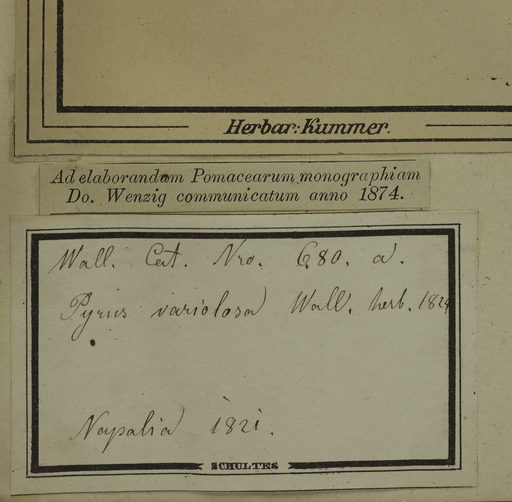 Herbar: Kummer.
Ad elaborandam Pomacearum monographiam
Do. Wenzig communicatum anno 1874.
Wall. Cat. Nro. 680. a.
Pyrus variolosa Wall. herb. 1824
Napalia 1821.
SCHULTES